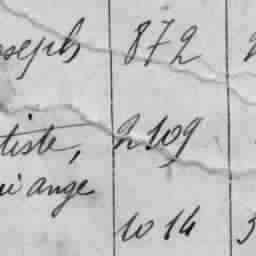 oseph 872
tiste, 2109
ange
1014